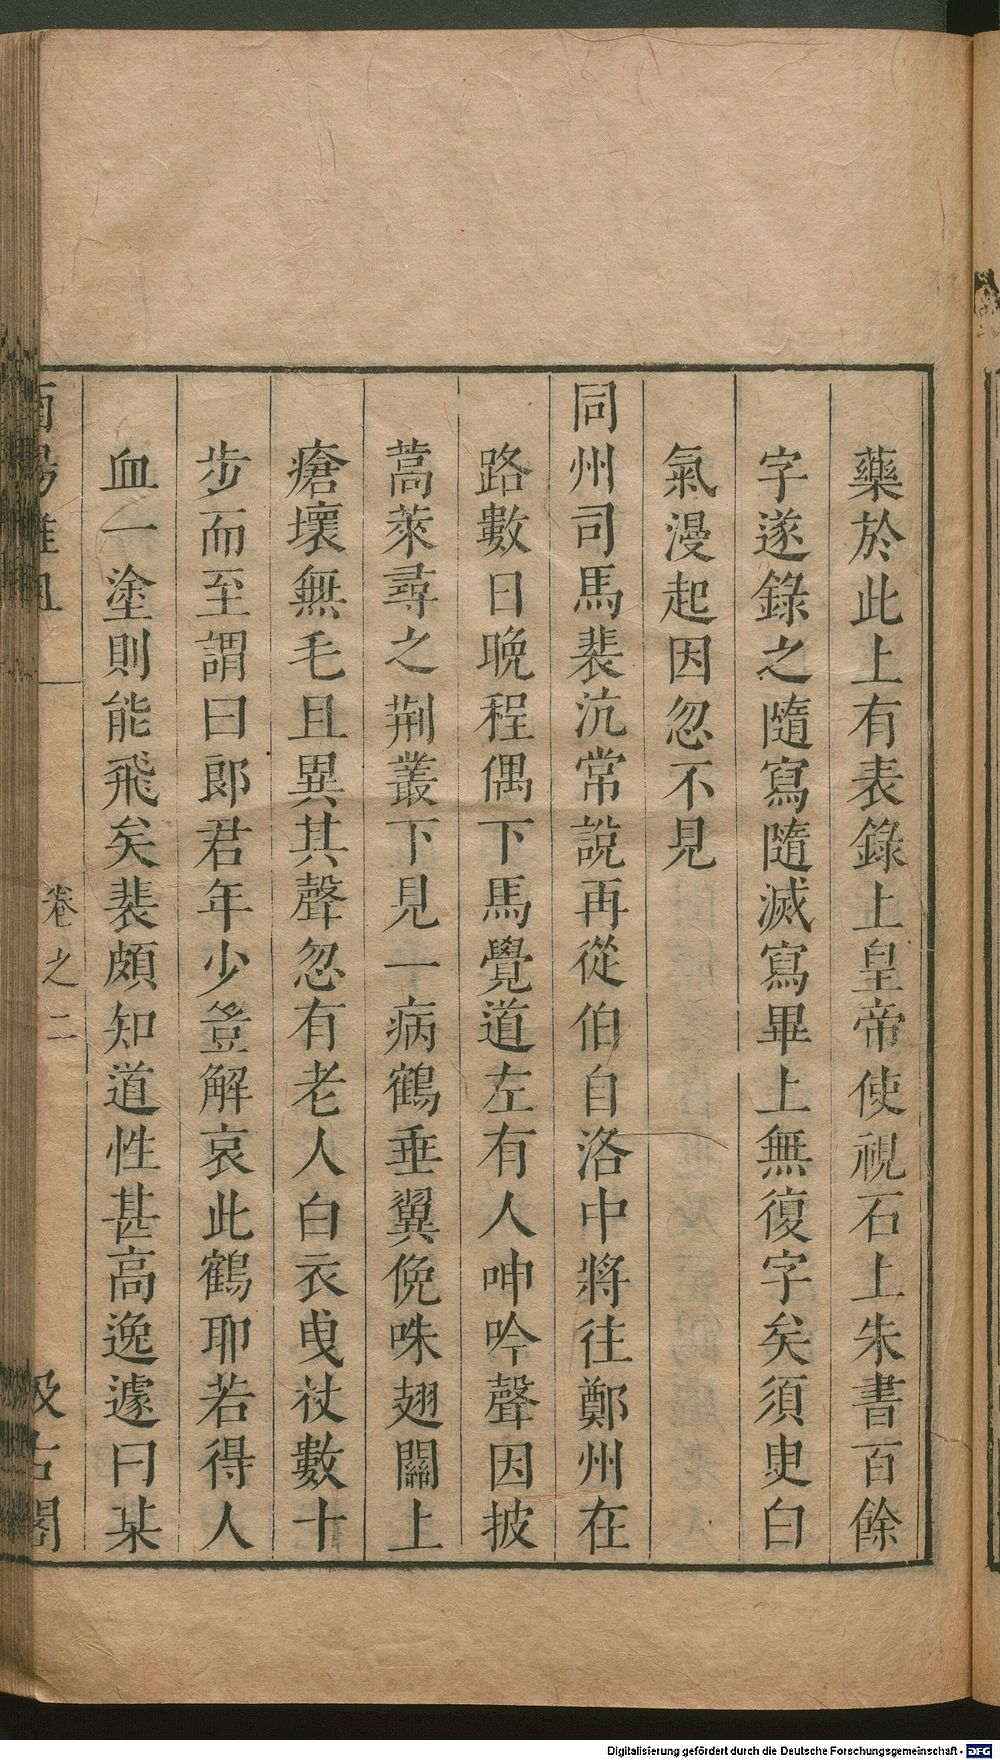 藥於此上有表錄上皇帝使視石上朱書百餘
字遂錄之隨寫隨滅寫畢上無復字矣須臾白
氣漫起因忽不見
同州司馬裴沆常說再從伯自洛中將往鄭州在
路數日晚程偶下馬覺道左有人呻吟聲因披
蒿萊尋之荆叢下見一病鶴垂翼俛咮翅關上
瘡壞無毛且異其聲忽有老人白衣曵杖數十
步而至謂曰郎君年少豈解哀此鶴耶若得人
血一塗則能飛矣裴頗知道性甚高逸遽曰某
卷之二
汲古閣
Digitalisierung gefördert durch die Deutsche Forschungsgemeinschaft - DFG